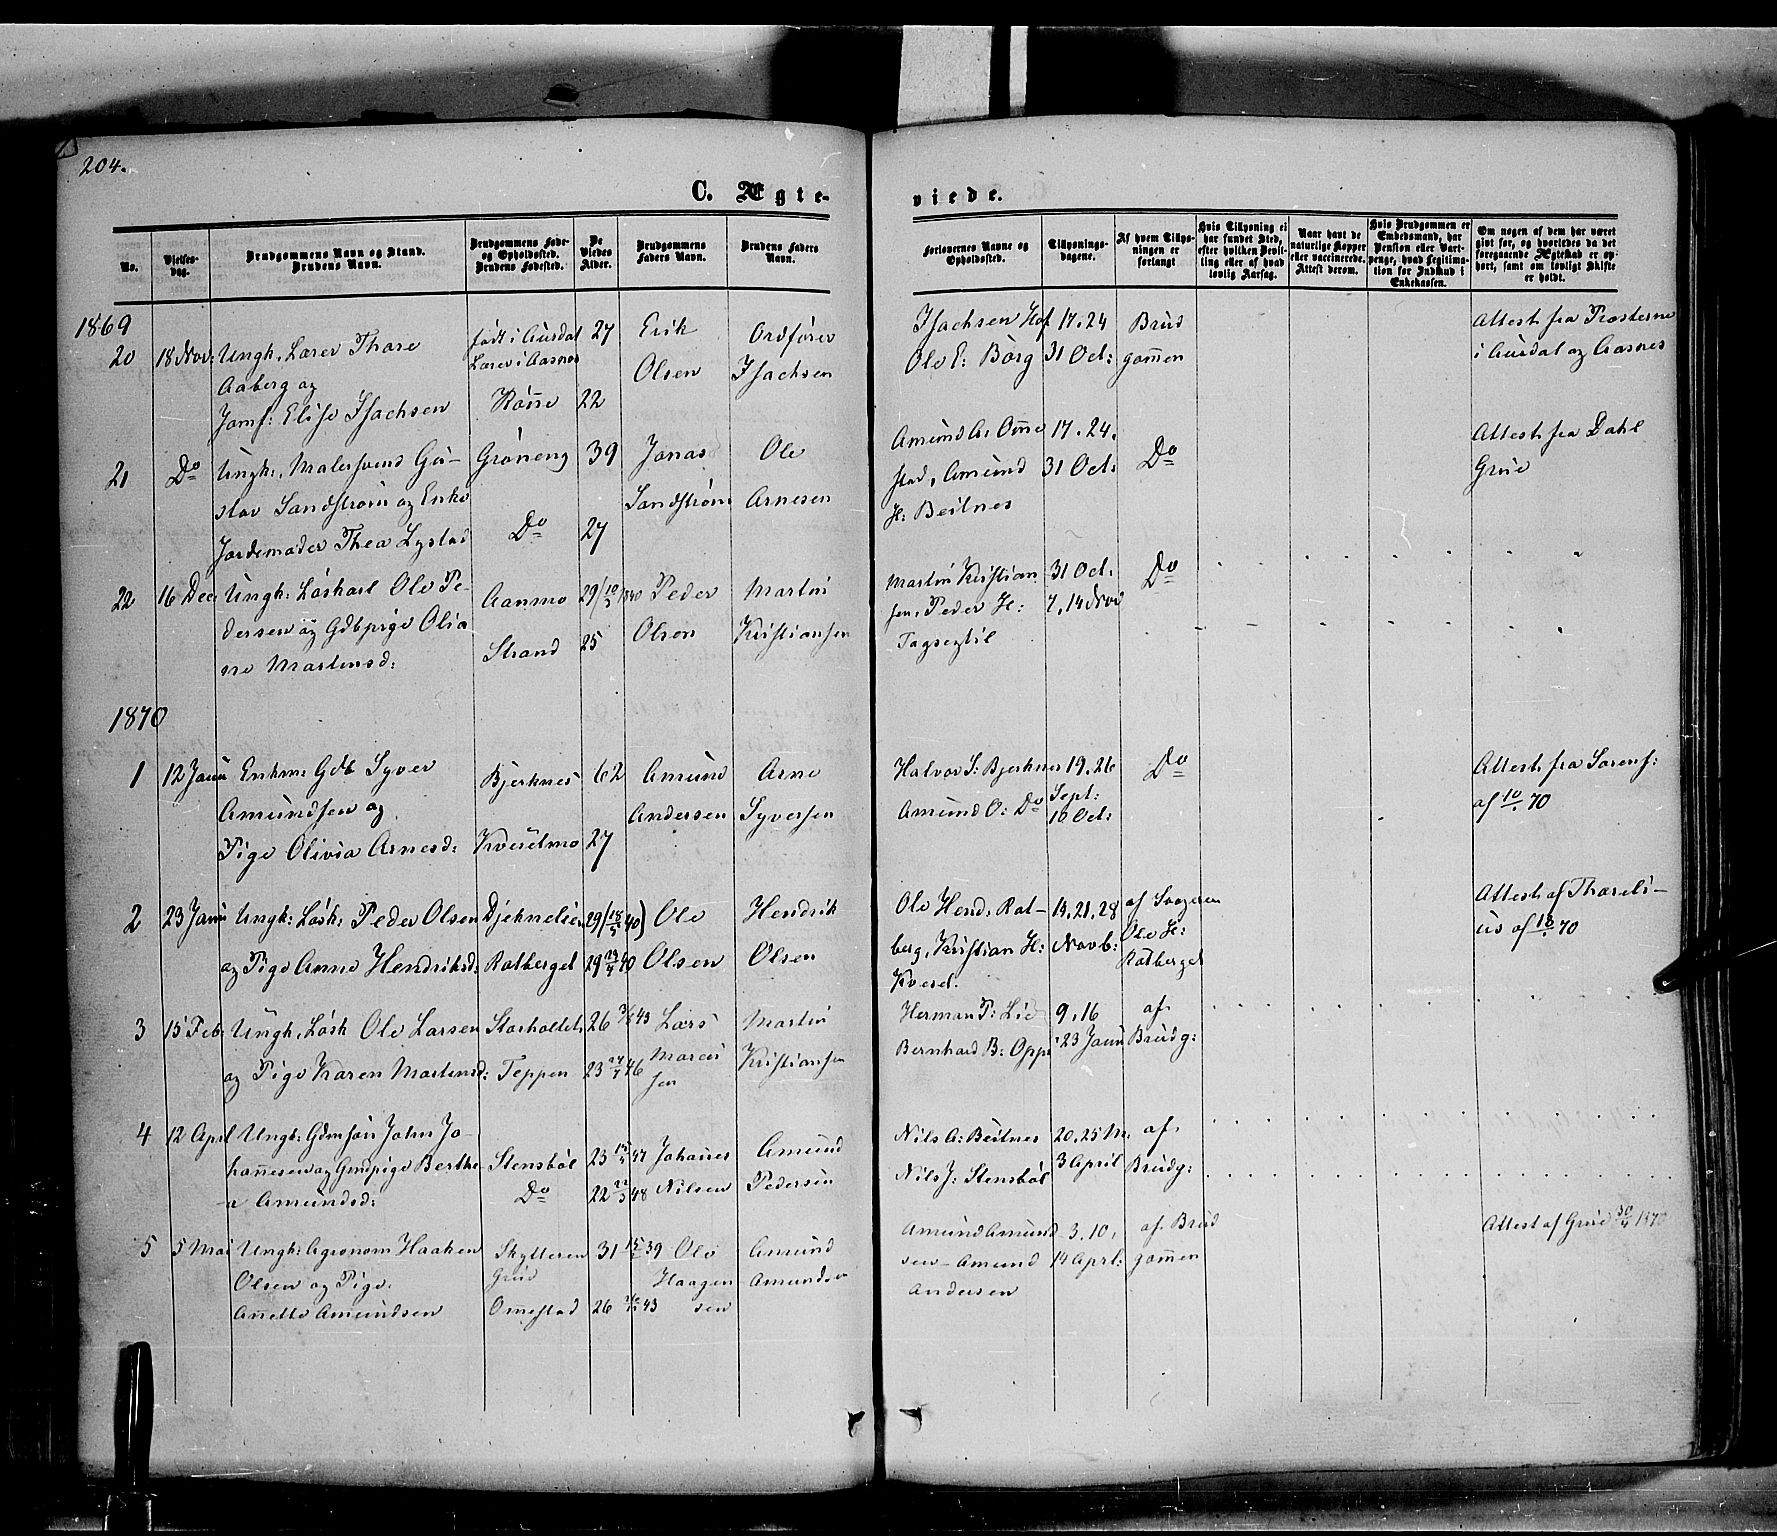 204.
C. Ægte-
viede.
No.
Vielses-
dag.
Brudgommens Navn og Stand.
Brudens Navn.
Brudgommens Føde-
og Opholdssted.
Brudens Fødested.
De
Viedes
Alder.
Brudgommens
Faders Navn.
Brudens Faders
Navn.
Forlovernes Navne og
Opholdssted.
Tillysnings-
dagene.
Af hvem Tillys-
ningen er
forlangt
Hvis Tillysning ei
har fundet Sted,
efter hvilken Bevil-
ling eller af hvad
lovlig Aarsag.
Naar havt de
naturlige Kopper
eller vaccinerede.
Attest derom.
Hvis Brudgommen er
Embedsmand, har
Pension eller Vart-
penge, hvad Legitima-
tion for Indskud i
Enkekassen.
Om nogen af dem har været
gift før, og hvorledes da det
foregaaende Ægteskab er op-
hørt, samt om lovligt Skifte
er holdt.
1869
20 18 Nov: Ungk. Lærer Thore
Aaberg og
Jomf: Elise Isachsen
født i Aurdal
Lærer i Aasnes
Kønne
27
22
Erik
Olsen
Ordfører
Isachsen
Isachsen Hof
Ole E: Borg
17. 24
31 Oct:
Brud
gommen
Attest fra Præsterne
i Aurdal og Aasnes
21 Do Ungk. Malersvend Gu-
stav Sandstrøm og Enke
Jordemoder Thea Lystad
Grøneng
Do
39
27
Jonas
Sandstrøm
Ole
Arnesen
Amund A: Omne
stad, Amund
H: Beitnes
17. 24.
31 Oct:
Do
Attest fra Dahl
Grue
22 16 Dec Ungk: Løskarl Ole Pe-
dersen og Gdbpige Olia
ne Martinsd:
Aanmo
Strand
29 (10/3 1840
25
Peder
Olsen
Martin
Kristiansen
Martin Kristian
sen, Peder H:
Tagsegtil
31 Oct.
7, 14 Nov
Do
1870
1 12 Janu Enkm: Gdb Syver
Amundsen og
Pige Olivia Arnesd:
Bjerknes
Kverelmo
62
27
Amund
Andersen
Arne
Syversen
Halvor S: Bjerknes
Amund O: Do
19. 26
Sept:
10 Oct:
Do
Attest fra Sørens:
af 10/1 70
2 23 Janu Ungk: Løsk: Peder Olsen
og Pige Anne Hendriksd:
Djeknelien
Rotberget
29 (18/5 40)
29 29/4 40
Ole
Olsen
Hendrik
Olsen
Ole Hend: Rot-
berg, Kristian H:
Kvesel.
14, 21, 28
Novb:
af Svogeren
Ole H:
Rotberget
Attest af Thoreli-
us af 18/1 70
3 15 Feb: Ungk. Løsk Ole Larsen
og Pige Karen Martinsd:
Storholtet
Teppen
26 3/8 43
23 24/7 46
Lars
Marcus
sen
Martin
Kristiansen
Herman P: Lie
Bernhard B: Oppe
9, 16
23 Janu
af
Brudg:
4 12 April Ungk: Gdmsøn John Jo-
hannesen og Gmdpige Berthe
a Amundsd:
Stensbøl
Do
23
22 22/3 48
Johannes
Nilsen
Amund
Pedersen
Nils A: Beitnes
Nils J: Stensbøl
20, 25 M.
3 April
af
Brudg:
5 5 Mai Ungk: Agronom Haaken
Olsen og Pige
Anette Amundsen
Skytteren
Grue
Omestad
31
26
Ole
Haagen
sen
Amund
Amundsen
Amund Amund
sen - Amund
Andersen
3, 10,
14 Aprl:
af Brud
gommen
Attest af Grue 30/4 1870